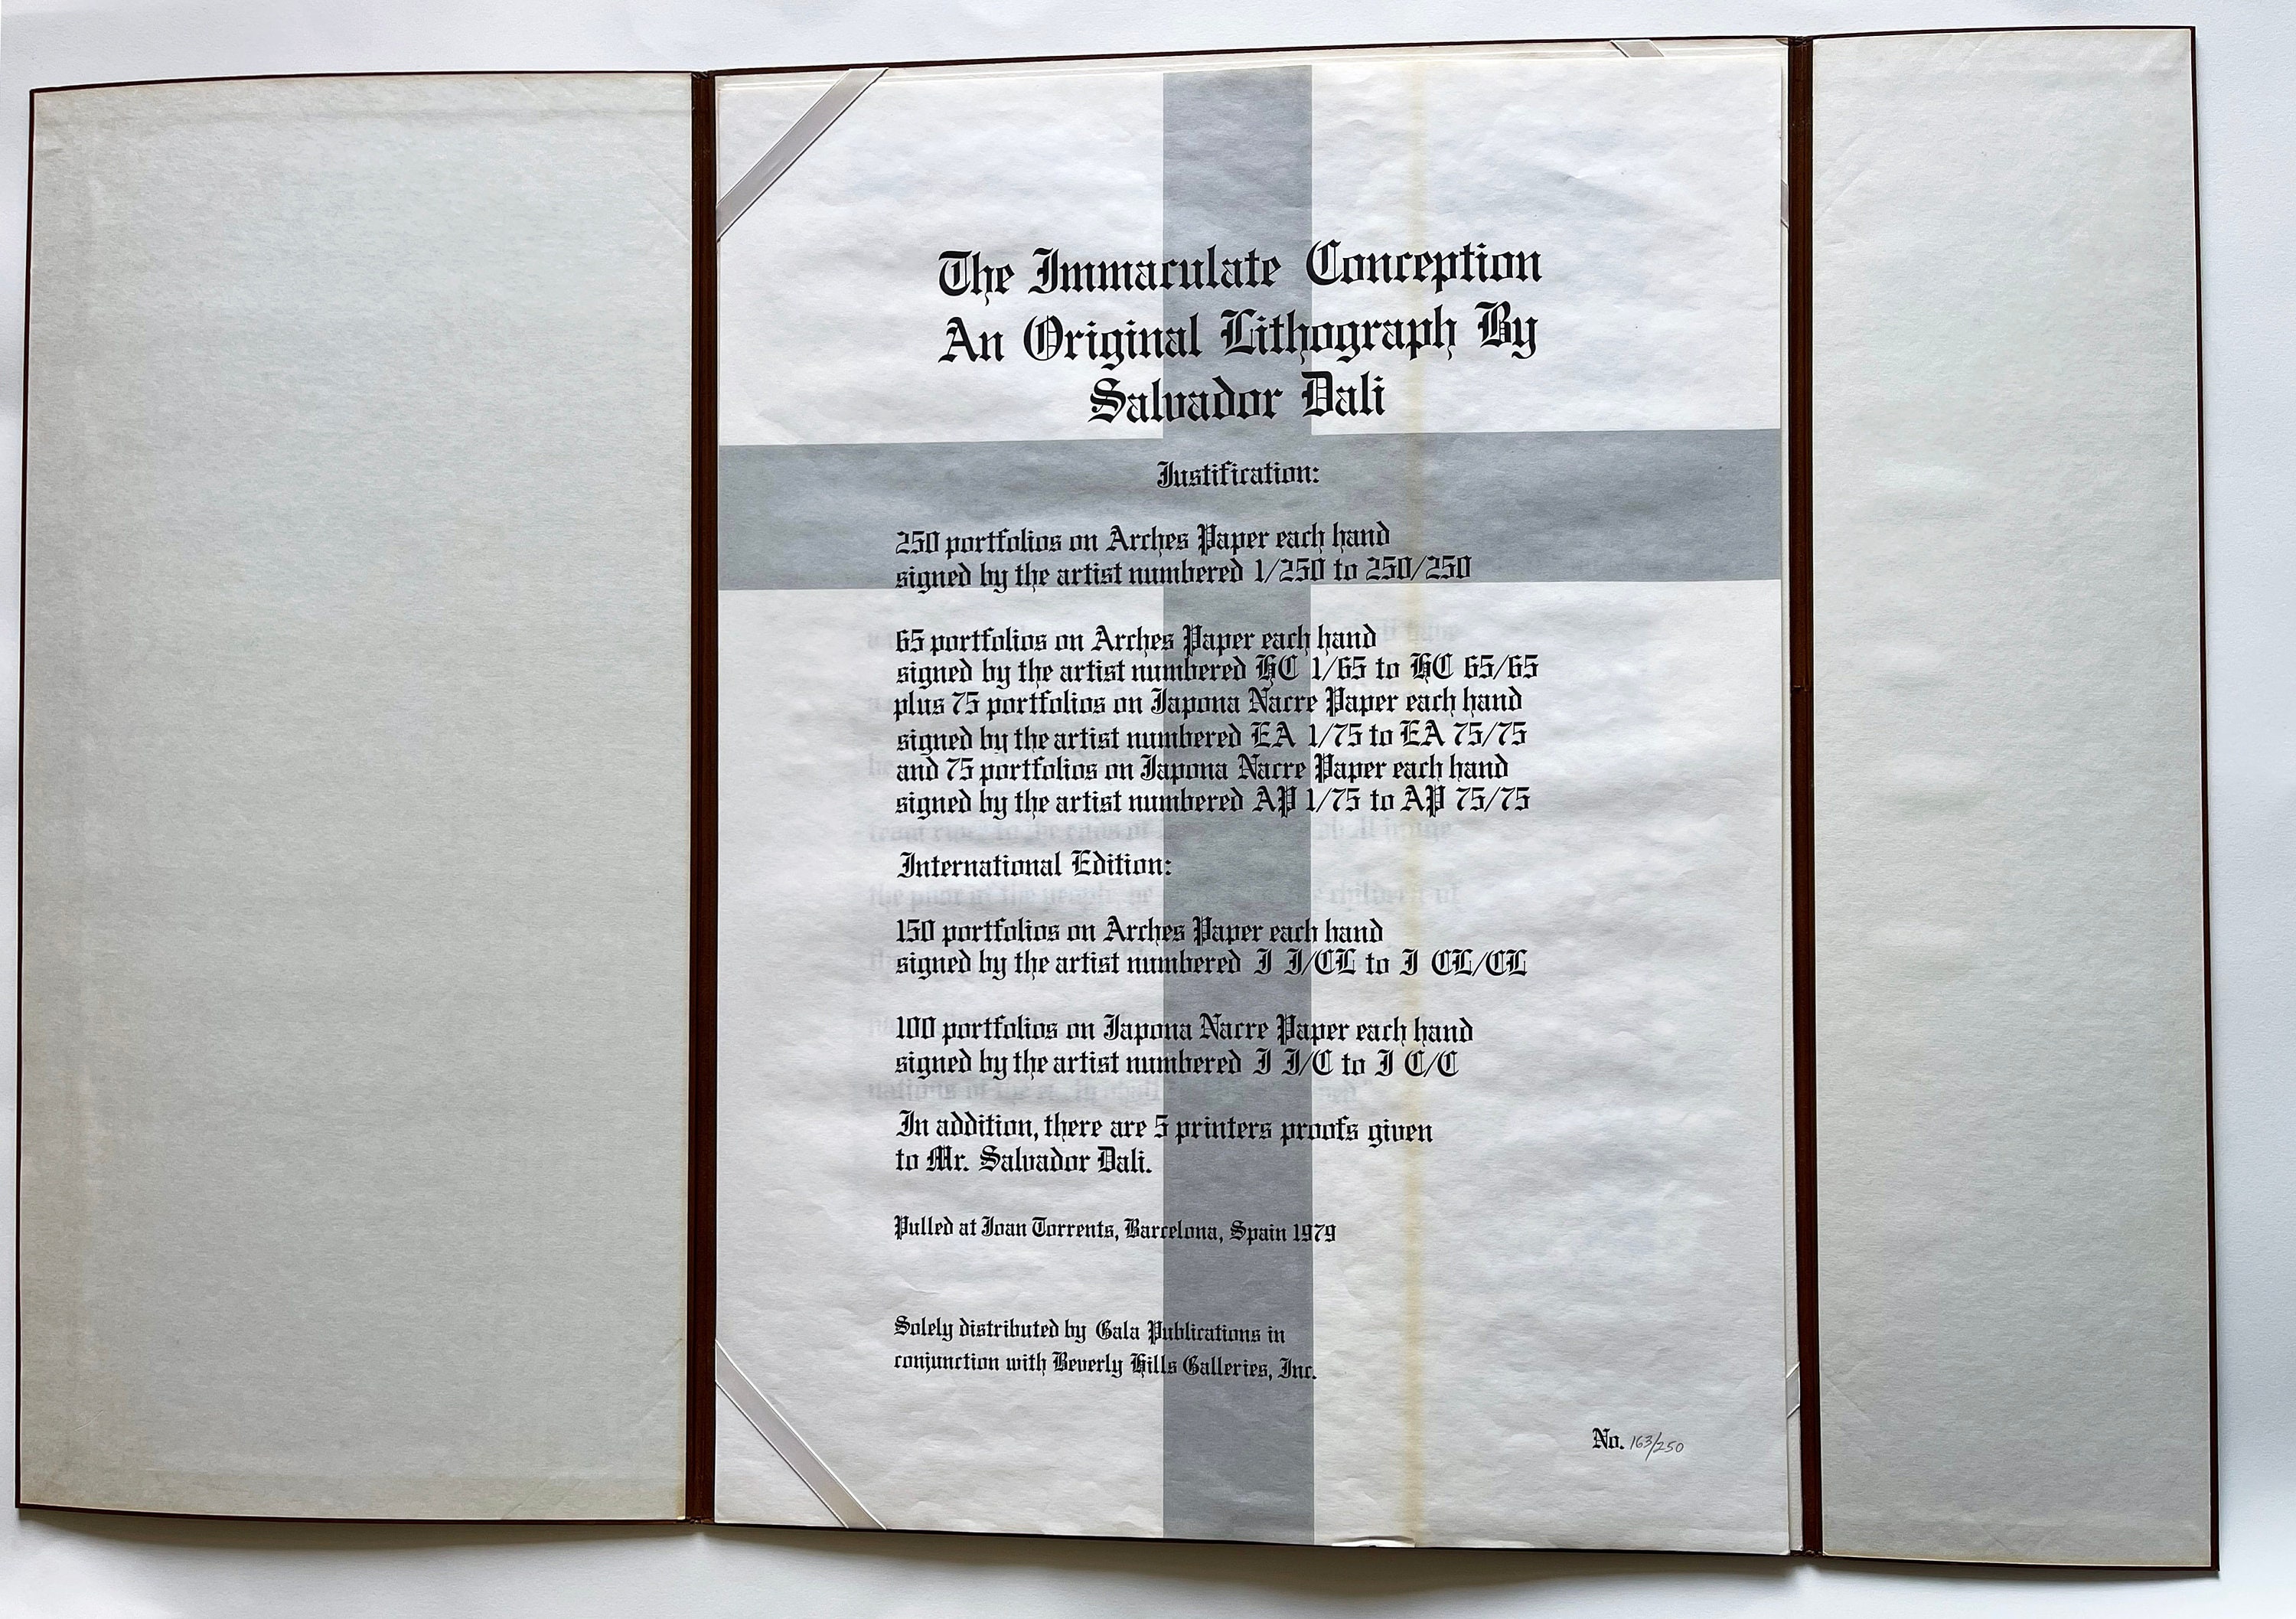 The Immaculate Conception
An Original Lithograph By
Salvador Dali
Justification:
250 portfolios on Arches Paper each hand
signed by the artist numbered 1/250 to 250/250
65 portfolios on Arches Paper each hand
signed by the artist numbered HC 1/65 to HC 65/65
plus 75 portfolios on Japona Nacre Paper each hand
signed by the artist numbered EA 1/75 to EA 75/75
and 75 portfolios on Japona Nacre Paper each hand
signed by the artist numbered AP 1/75 to AP 75/75
International Edition:
150 portfolios on Arches Paper each hand
signed by the artist numbered I I/CL to I CL/CL
100 portfolios on Japona Nacre Paper each hand
signed by the artist numbered I I/C to I C/C
In addition, there are 5 printers proofs given
to Mr. Salvador Dali.
Pulled at Joan Torrents, Barcelona, Spain 1979
Solely distributed by Gala Publications in
conjunction with Beverly Hills Galleries, Inc.
No. 163/250